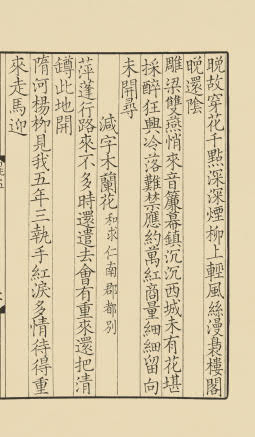 晚故穿花千點深深煙柳上輕風絲漫裊樓閣
晚還陰
雕梁雙燕悄來音簾幕鎮沉沉西城未有花堪
採醉狂興冷落難禁應約萬紅商量細細留向
未開尋
減字木蘭花和求仁南郡都別
萍蓬行路來不多時還遣去會有重來還把清
罇此地開
隋河楊柳見我五年三執手紅淚多情待得重
來走馬迎